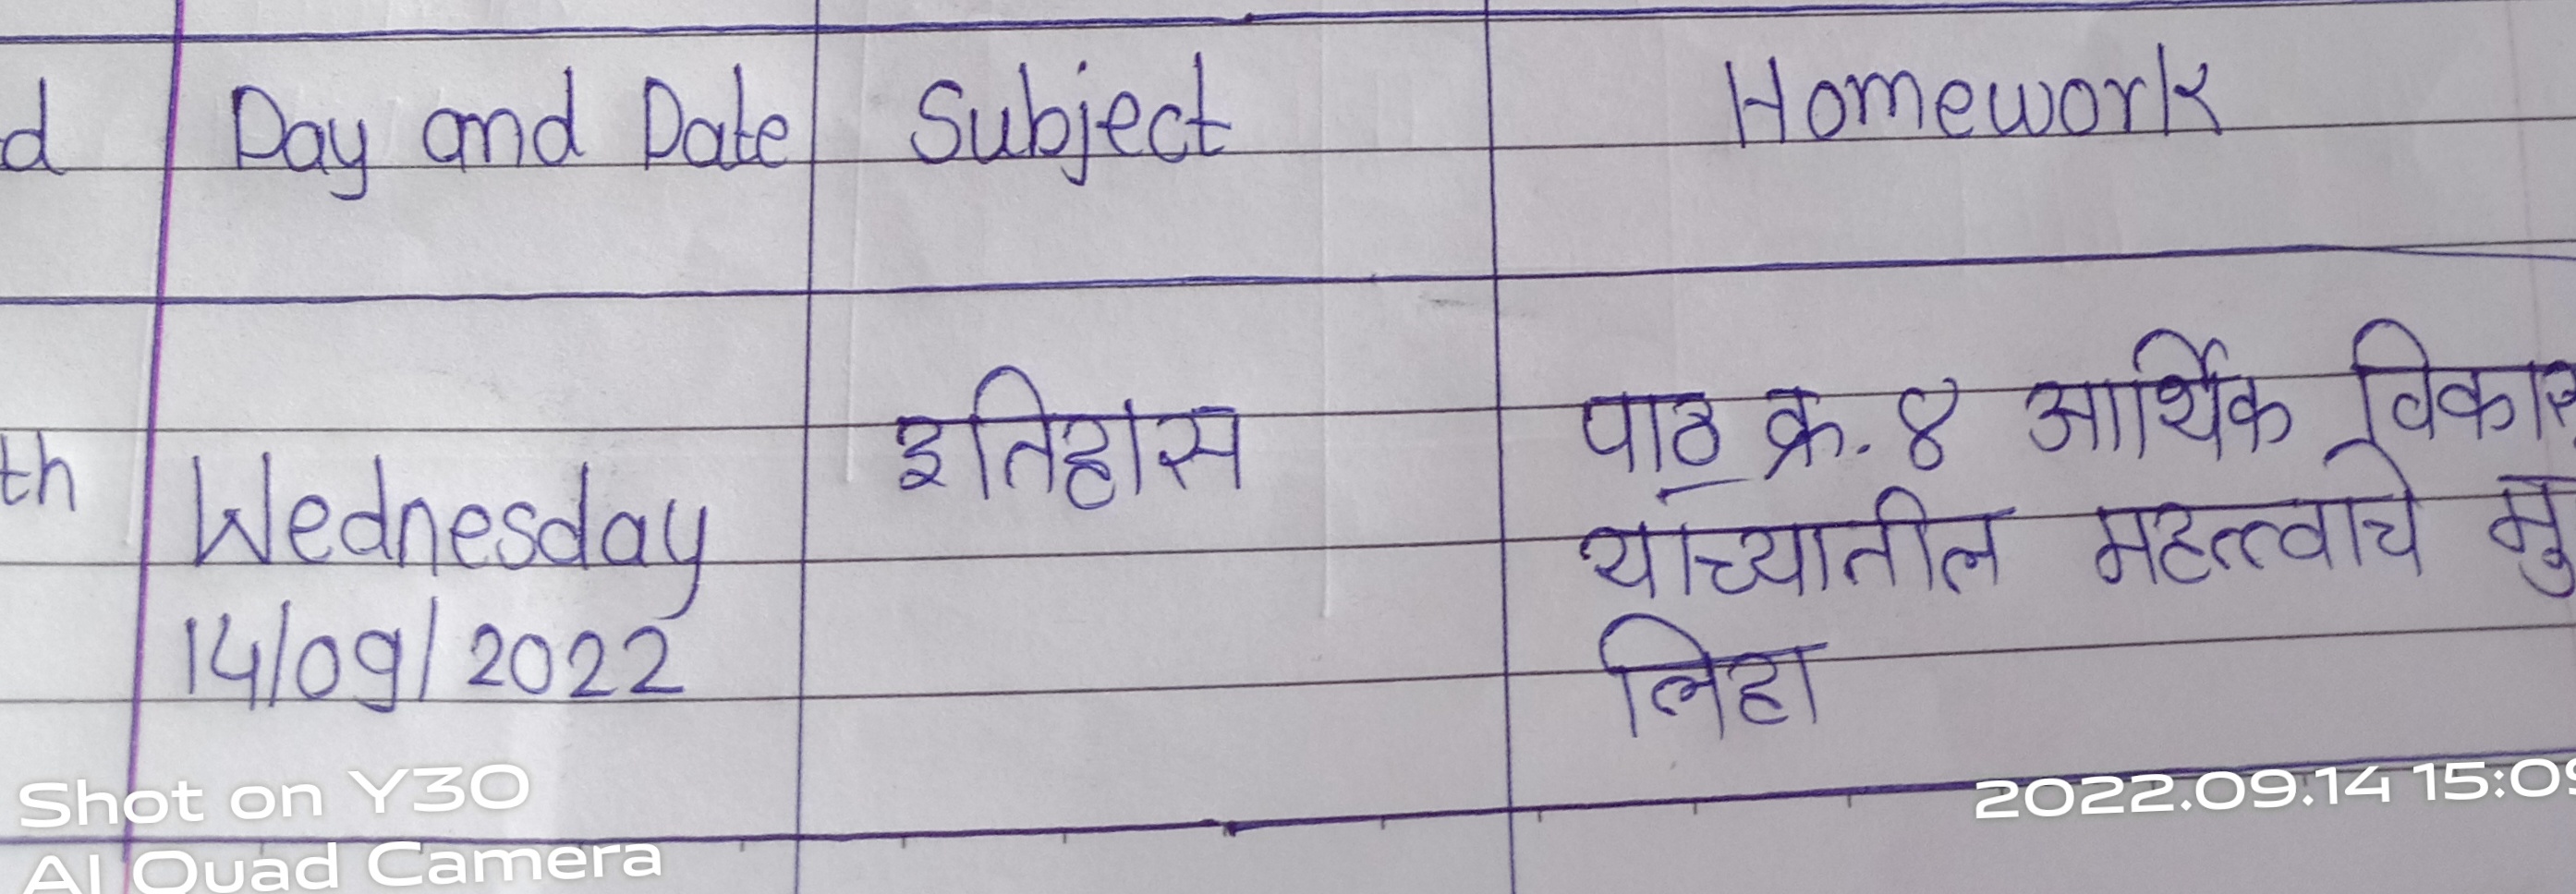 d Day and Date Subject Homework
इतिहास पाठ क्र. ४ आर्थिक विकास
th Wednesday यांच्यातील महत्त्वाचे मु
14/09/2022 लिहा
Shot on Y30 2022.09.14 15:09
AI Quad Camera